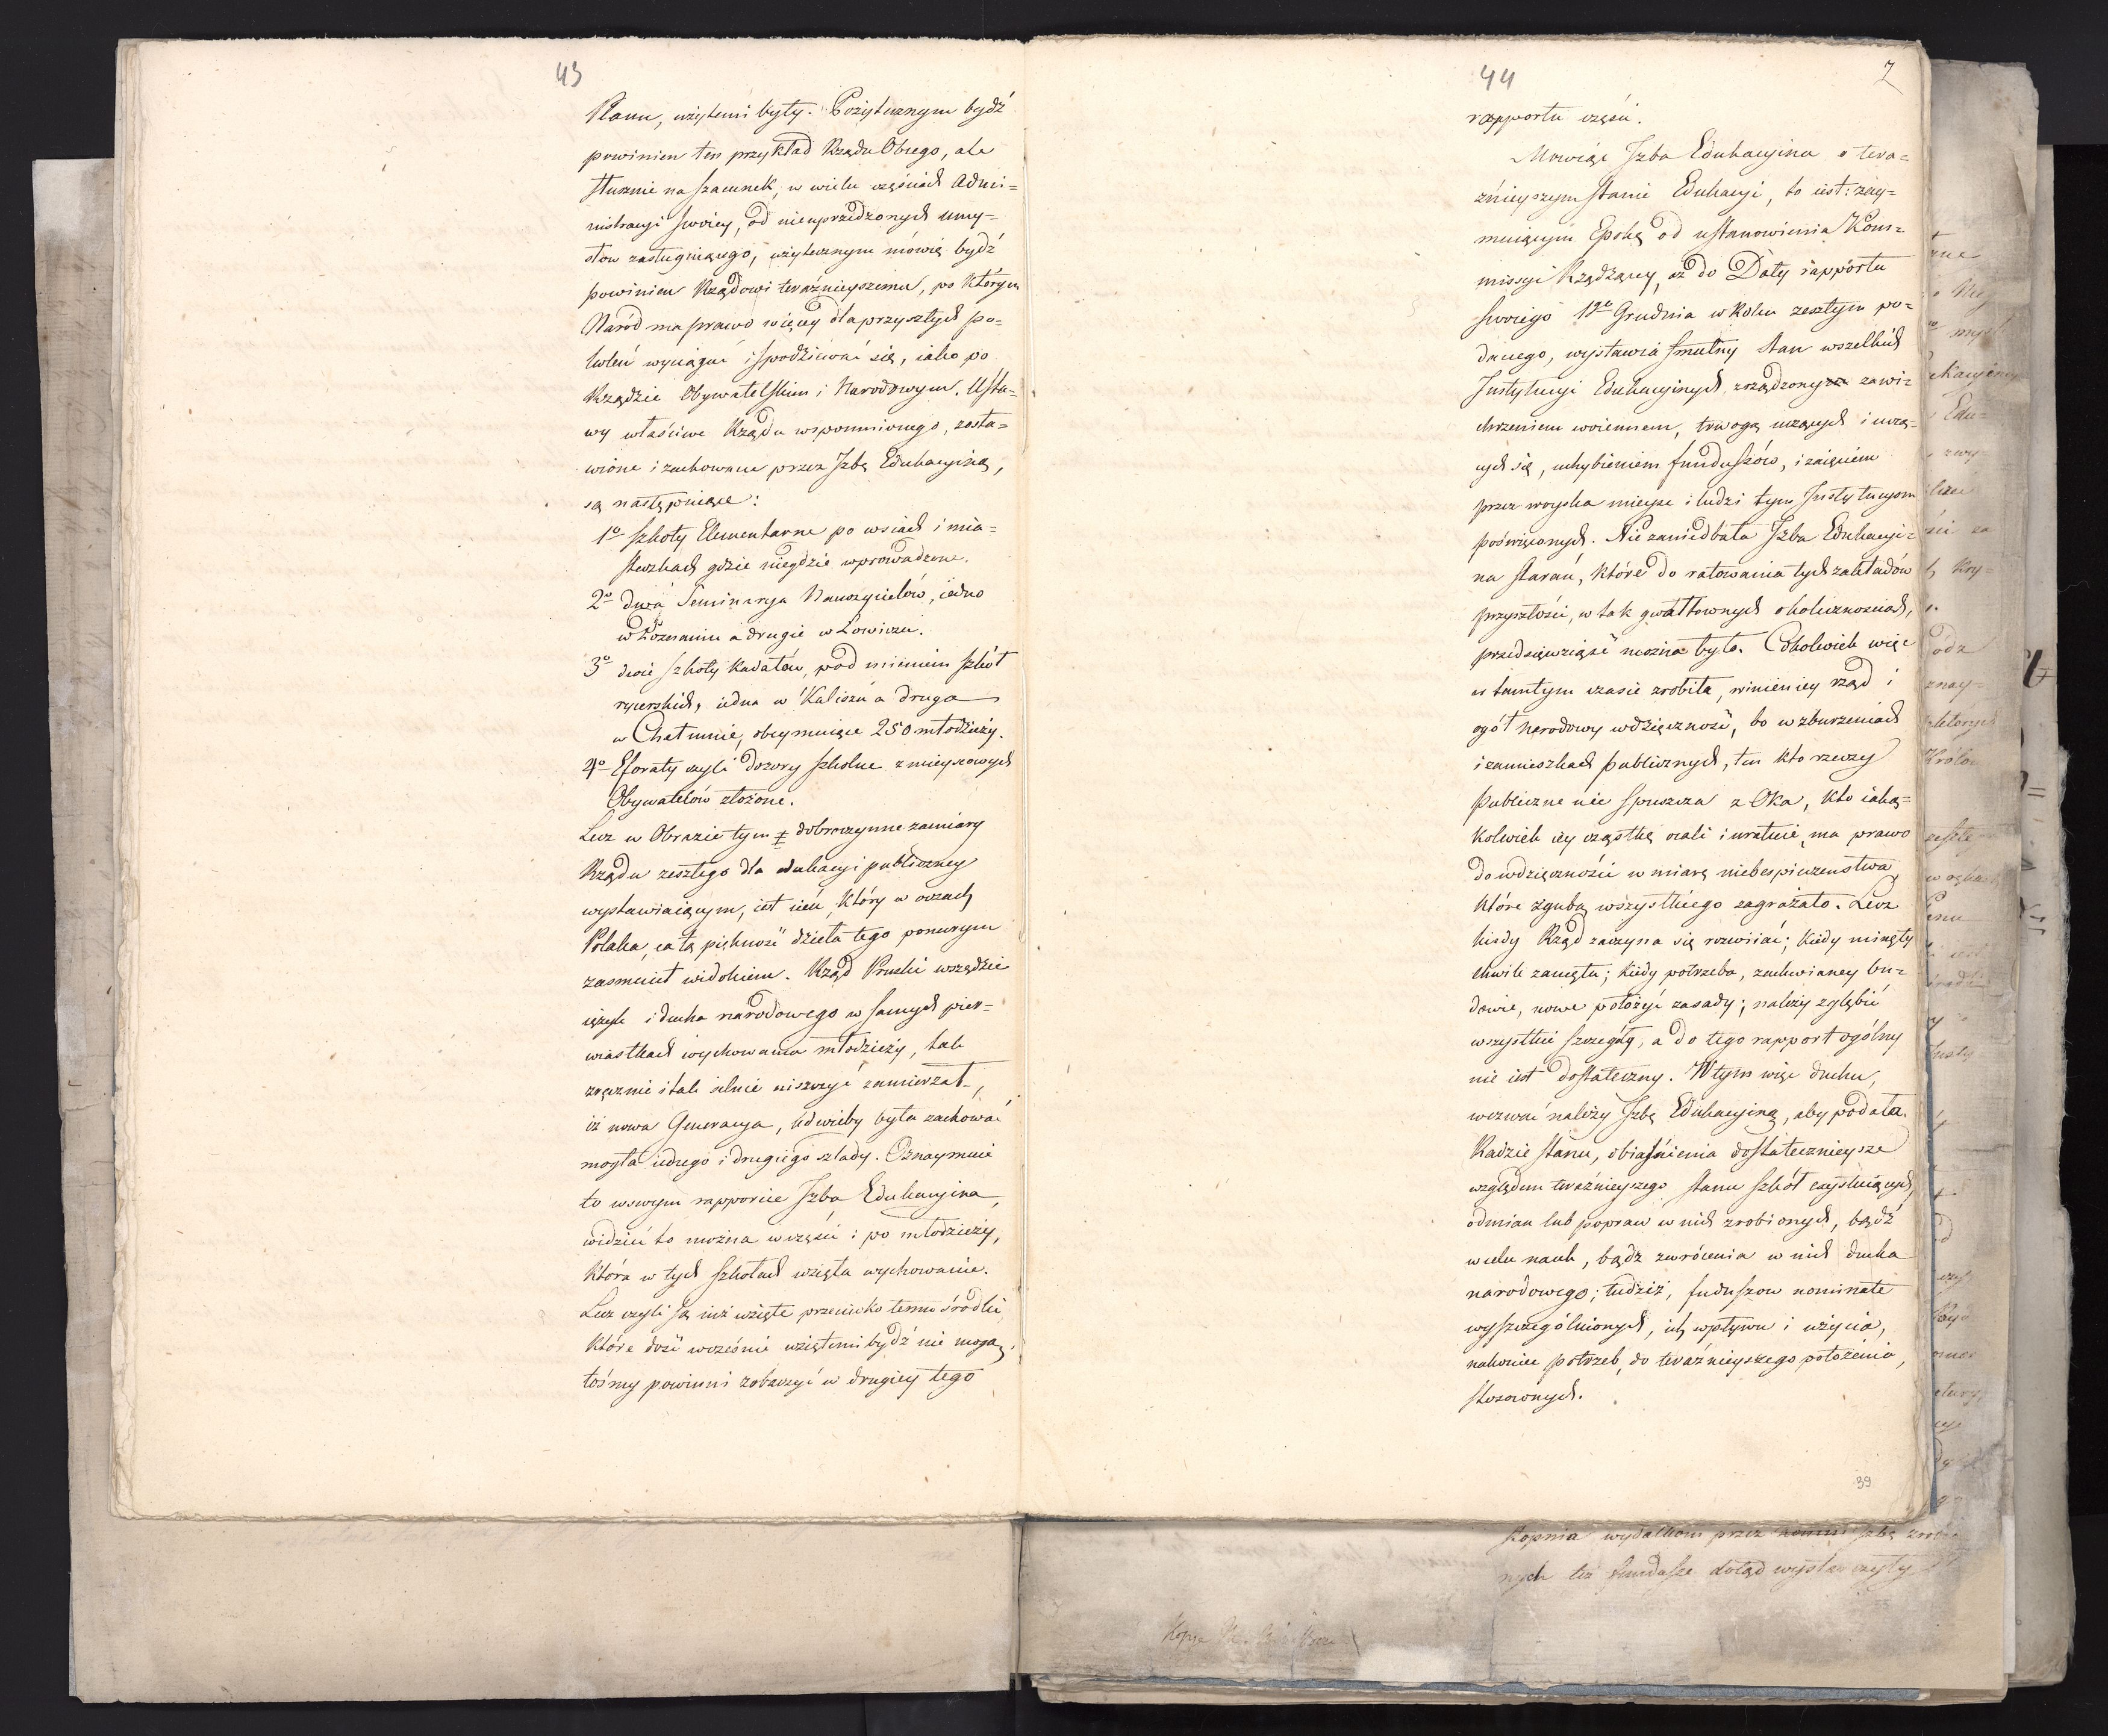 43
Planu, użytemi były. Pożytecznym bydź
powinien ten przykład Rządu Obcego, ale
słusznie na szacunek, w wielu częściach Admi=
nistracyi swoiey, od nieuprzedzonych umy=
słow zasługuiącego, użytecznym mówię bydź
powinien Rządowi teraźnieyszemu, po którym
Naród ma prawo więcey dla przyszłych po=
koleń wyciągać i spodziewać się, iako po
Rządzie Obywatelskim i Narodowym. Usta=
wy właściwe Rządu wspomnionego, zosta=
wione i zachowane przez Izbę Edukacyiną,
są następuiące:
1o Szkoły Elementarne po wsiach i mia=
steczkach gdzie niegdzie wprowadzone.
2o dwa Seminarya Nauczycielów, iedno
w Poznaniu a drugie w Łowiczu.
3o dwie szkoły kadetów, pod imieniem szkół
rycerskich, iedna w Kaliszu a druga
w Chełmnie, obeymuiące 250 młodzieży.
4o Eforaty czyli dozory szkolne z mieyscowych
Obywatelów złożone.
Lecz w Obrazie tym dobroczynne zamiary
Rządu zeszłego dla edukacyi publiczney
wystawiaiącym, iest cień, który w oczach
Polaka, całą piękność dzieła tego ponurym
zasmucił widokiem. Rząd Pruski wszędzie
ięzyk i ducha narodowego w samych pier=
wiastkach wychowania młodzieży, tak
zręcznie i tak silnie niszczyć zamierzał,
iż nowa Generacya, ledwieby była zachować
mogła iednego i drugiego szlady. Oznaymuie
to w swym rapporcie Izba Edukacyina,
widzieć to można w części i po młodzieży,
która w tych szkołach wzięła wychowanie.
Lecz czyli są iuż wzięte przeciwko temu środki
które dość wcześnie wziętemi bydź nie mogą,
tośmy powinni zobaczyć w drugiey tego
44
7
rapportu części.
Mowiąc Izba Edukacyina o tera=
źnieyszym stanie Edukacyi, to iest: zay=
muiącym Epokę od ustanowienia Kom=
missyi Rządzącey, aż do Daty rapportu
swoiego Grudnia w Roku zeszłym po=
danego, wystawia smutny stan wszelkich
Instytucyi Edukacyinych, zrządzony zawi=
chrzeniem woiennem, trwogą uczących i uczą=
cych się, uchybieniem funduszów, i zaięciem
przez woyska mieysc i ludzi tym Instytucyom
poświęconych. Nie zaniedbała Izba Edukacyi=
na starań, które do ratowania tych zakładów
przyszłości, w tak gwałtownych okolicznościach,
przedsięwziąść można było. Cokolwiek więc
w tamtym czasie zrobiła, winien iey rząd i
ogół narodowy wdzięczność, bo w zburzeniach
i zamieszkach publicznych, ten kto rzeczy
publiczne nie spuszcza z Oka, kto iaką=
kolwiek iey cząstkę ocali i uratuie, ma prawo
do wdzięczności w miarę niebespieczenstwa,
które zgubą wszystkiego zagrażało. Lecz
kiedy Rząd zaczyna się rozwiiać; kiedy minęły
chwile zamętu; kiedy potrzeba, zachwianey bu=
dowie, nowe położyć zasady; należy zgłębić
wszystkie szczegóły, a do tego rapport ogólny
nie iest dostateczny. W tym więc duchu,
wezwać należy Izbę Edukacyiną, aby podała
Radzie stanu, obiaśnienia dostatecznieysze
względem teraźnieyszego stanu szkół exystuiących,
odmian lub popraw w nich zrobionych, bądź
w celu nauk, bądź zwrócenia w nich ducha
narodowego; tudzież, fuduszow nominate
wyszczególnionych, ich wpływu i użycia,
nakoniec potrzeb, do teraźnieyszego położenia,
stosownych.
39
stopnia wydatkom przez Izbę
nych też fundusze dotąd